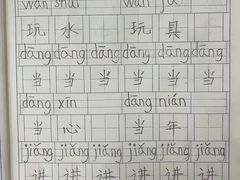 wán shuǐ wán jù
玩 水 玩 具
dāng dāng dāng dāng dāng dāng
当 当 当 当 当 当
dāng xīn dāng nián
当 心 当 年
jiǎng jiǎng jiǎng jiǎng jiǎng jiǎng
讲 讲 讲 讲 讲 讲